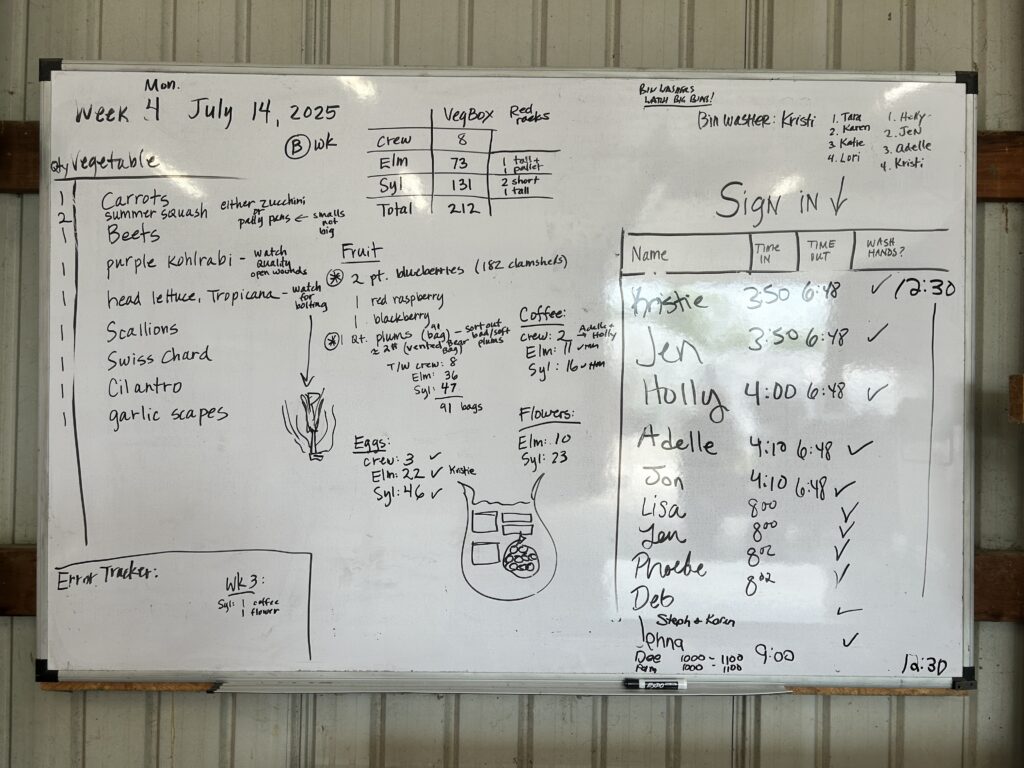 Mon.
Week 4 July 14, 2025
B wk
Qty Vegetable
1 Carrots
2 summer squash either zucchini or patty pans ← smalls not big
1 Beets
1 purple kohlrabi - watch quality open wounds
1 head lettuce, Tropicana - watch for bolting
1 Scallions
1 Swiss Chard
1 Cilantro
1 garlic scapes
Error Tracker:
Wk 3:
Syl: 1 coffee
1 flower
VegBox Red racks
Crew 8
Elm 73 1 tall + 1 pallet
Syl 131 2 short 1 tall
Total 212
Fruit
* 2 pt. blueberries (182 clamshells)
1 red raspberry
1 blackberry
* 1 Qt. plums (qt bag) - sort out bad/soft plums
≈ 2# (vented bag)
T/W crew: 8
Elm: 36
Syl: 47
91 bags
Coffee:
crew: 2 Adelle + Holly
Elm: 11
Syl: 16
Flowers:
Elm: 10
Syl: 23
Eggs:
crew: 3 ✓
Elm: 22 ✓ Kristie
Syl: 46 ✓
BIN WASHERS
LATCH BIG BINS!
Bin washer: Kristi
1. Tara
2. Karen
3. Katie
4. Lori
1. Holly
2. Jen
3. Adelle
4. Kristi
Sign in ↓
Name TIME IN TIME OUT WASH HANDS?
Kristie 3:50 6:48 ✓ 12:30
Jen 3:50 6:48 ✓
Holly 4:00 6:48 ✓
Adelle 4:10 6:48 ✓
Jon 4:10 6:48 ✓
Lisa 8:00 ✓
Jen 8:00 ✓
Phoebe 8:02 ✓
Deb 8:02 ✓
Steph + Karen ✓
Johna 9:00 ✓
Dee 1000 - 1100
Pam 1000 1100
12:30
EXPO